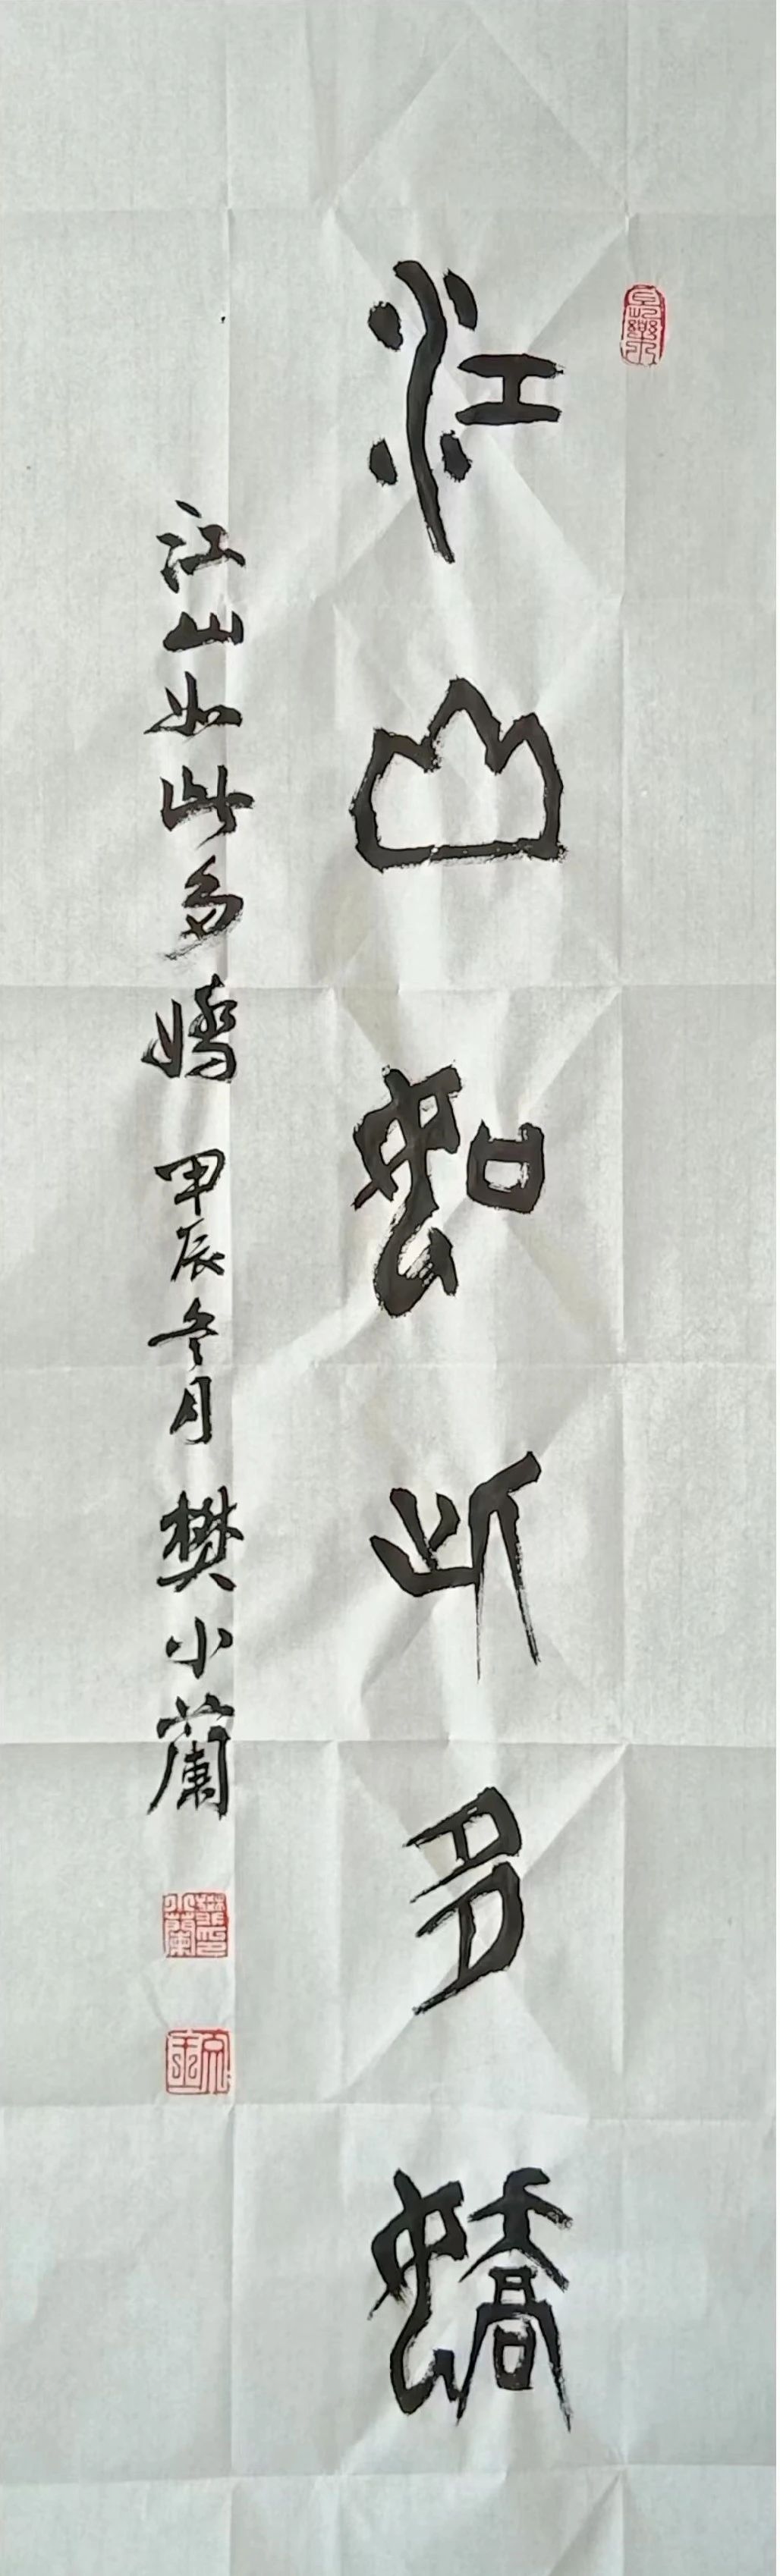 江山如此多嬌
江山如此多嬌 甲辰冬月 樊小蘭
樊小蘭印